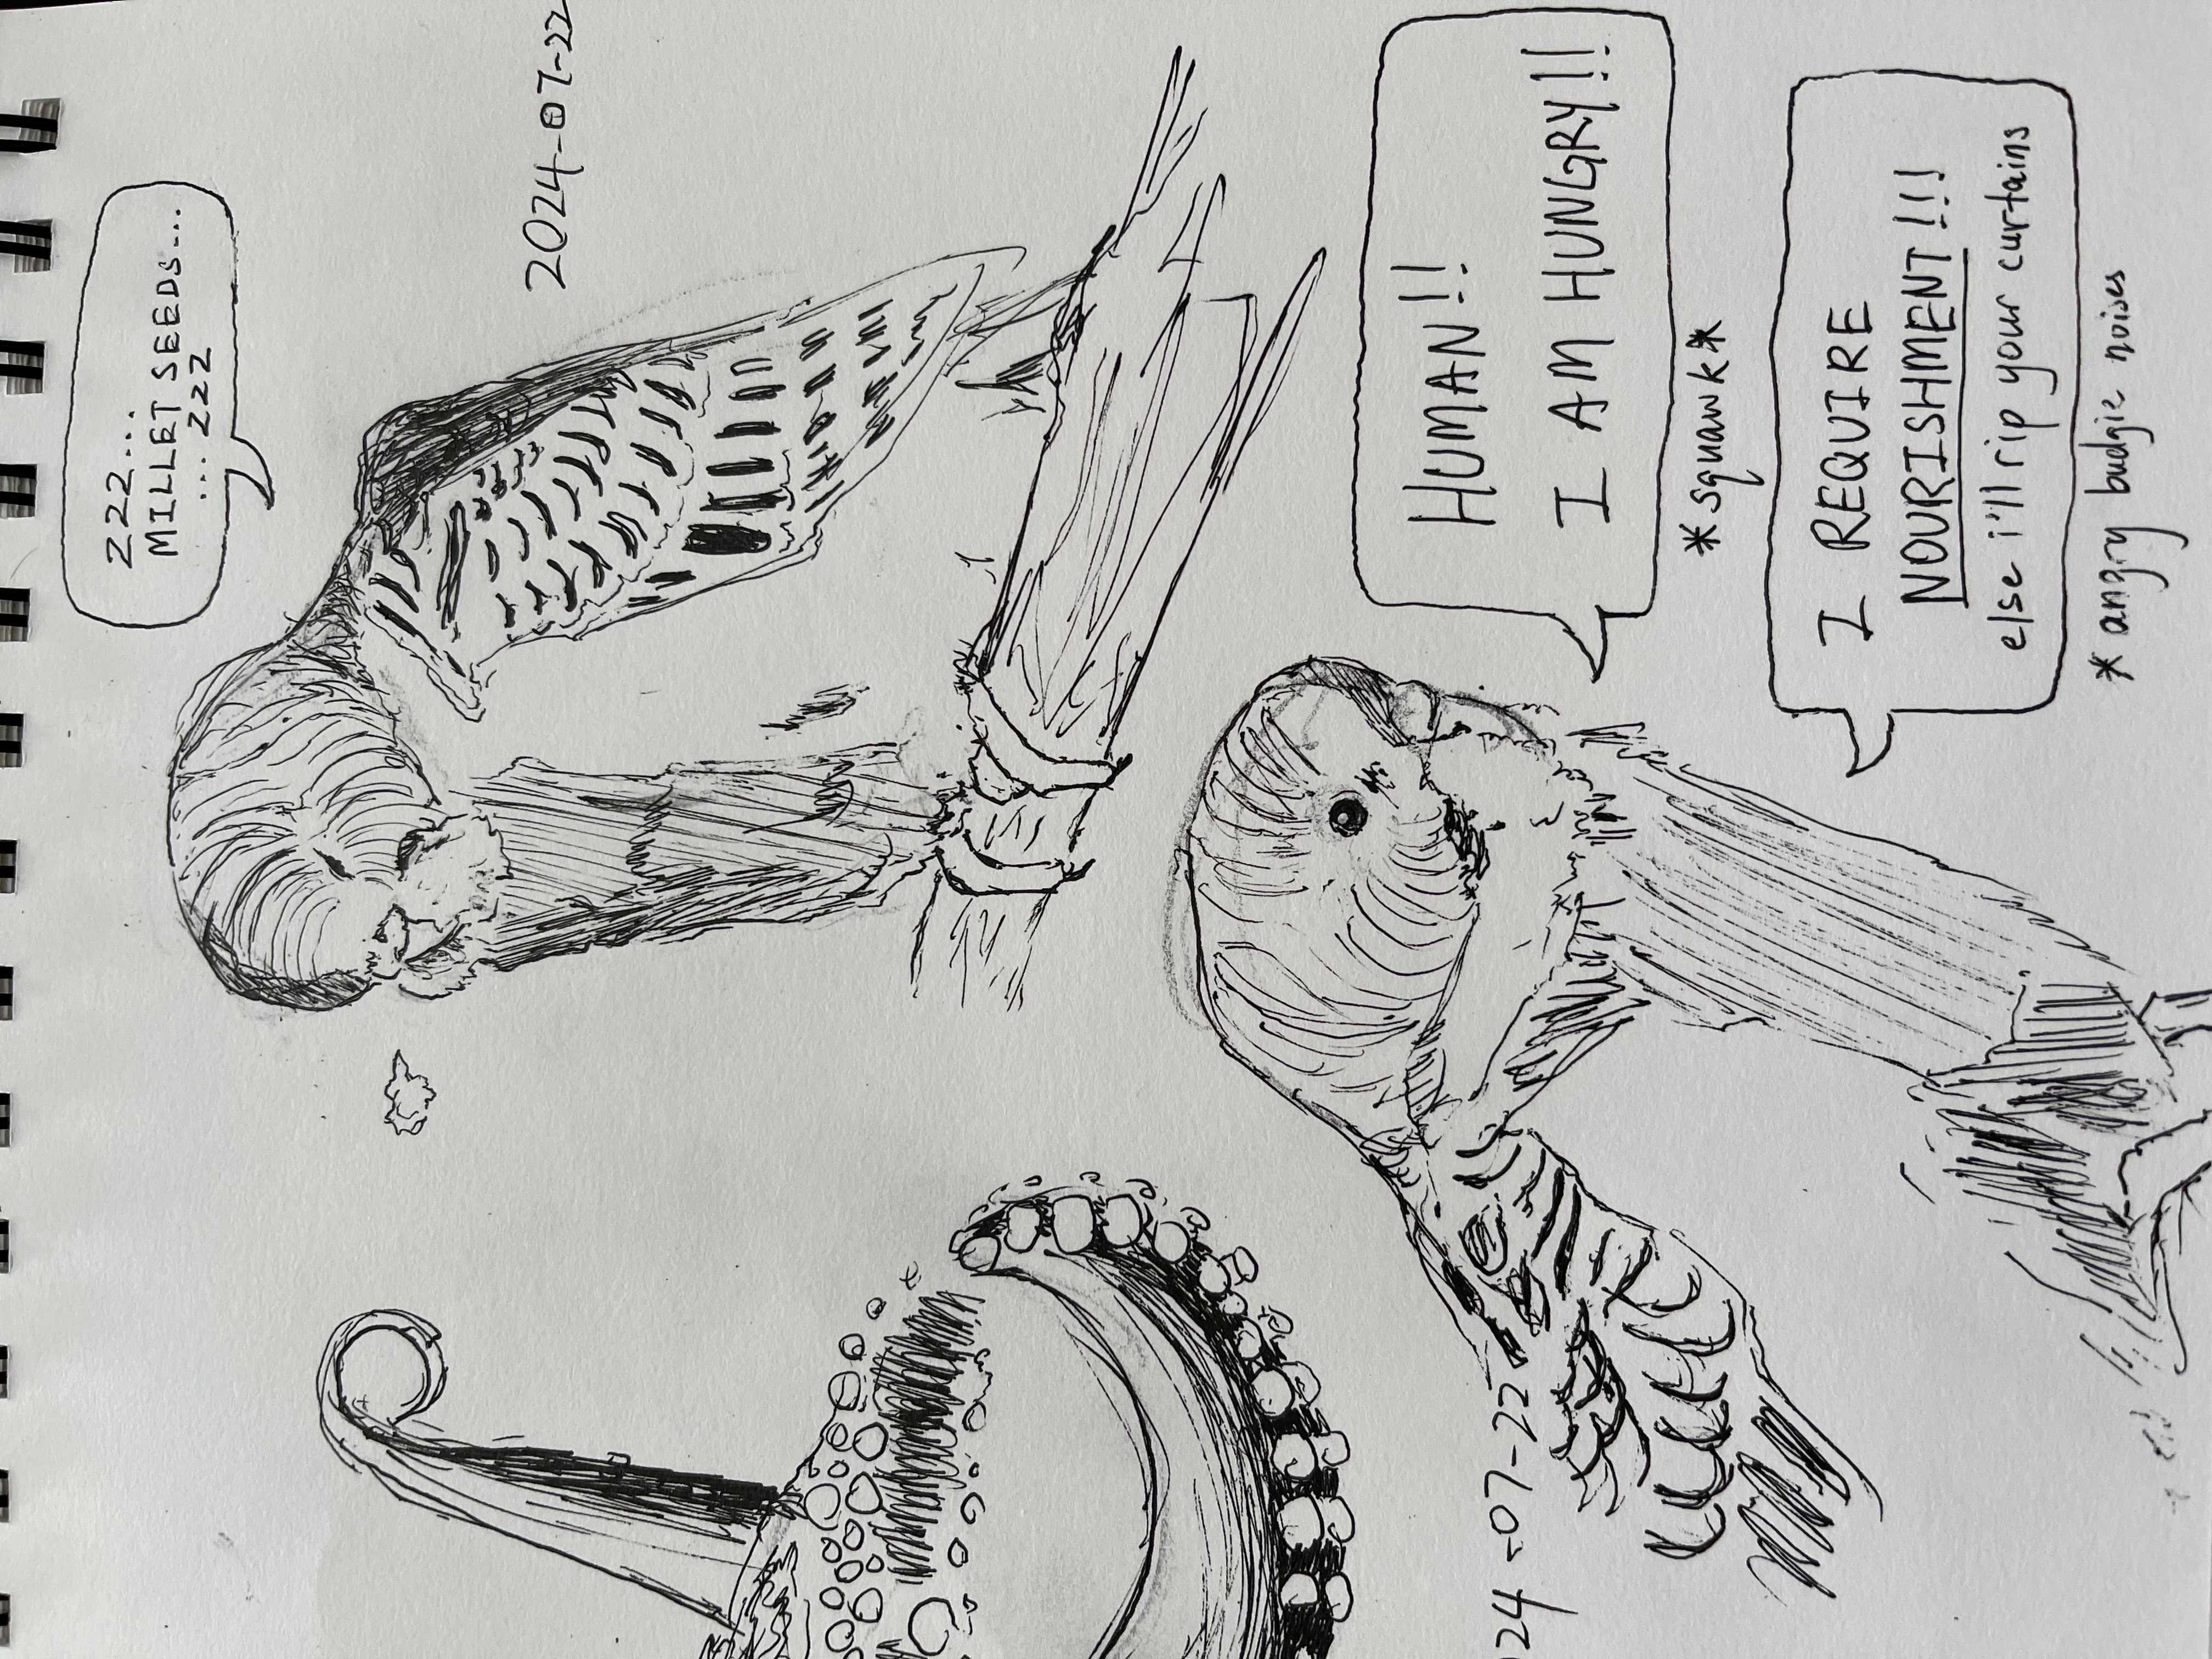 ZZZ...
MILLET SEEDS...
... ZZZ
2024-07-22
HUMAN!!
I AM HUNGRY!!
24-07-22
*squawk*
I REQUIRE
NOURISHMENT!!!
else i'll rip your curtains
* angry budgie noises